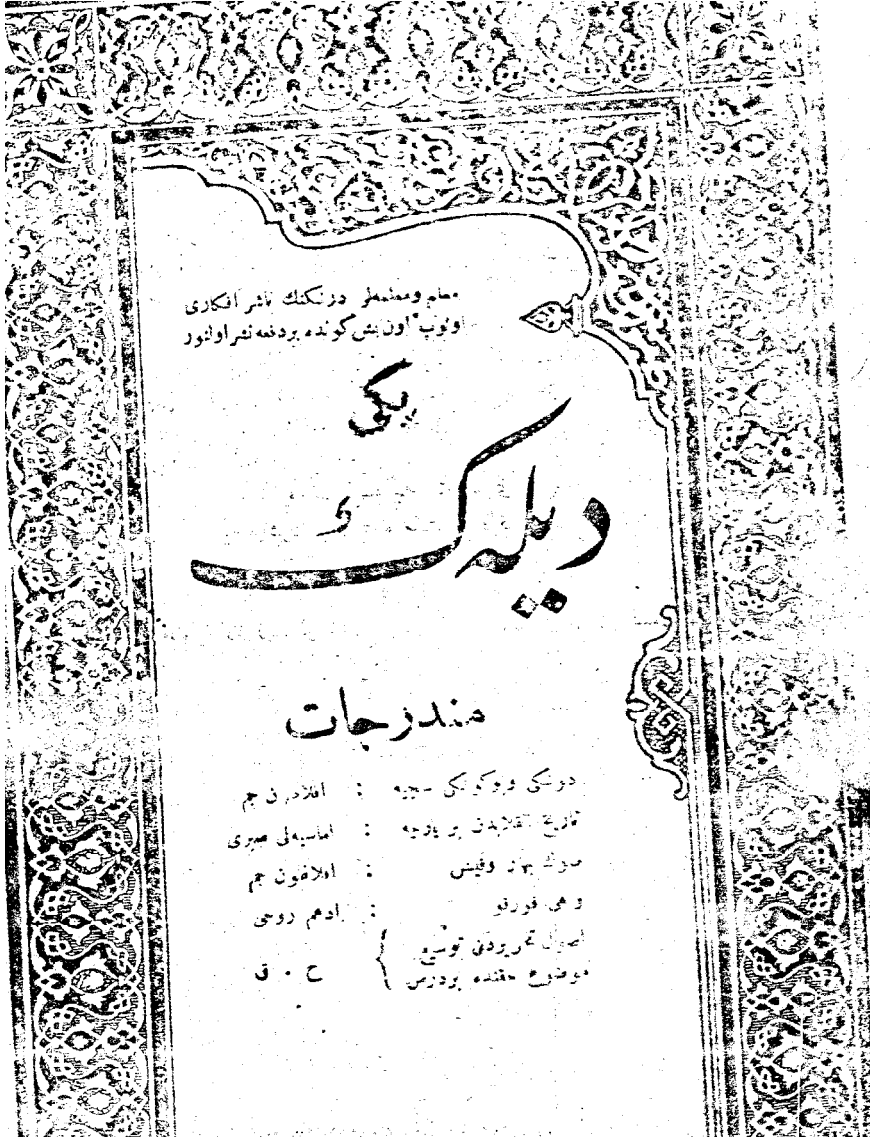 معلم ومعلمه‌لر درنكنك ناشر افكاری
اولوب اون بش كونده بر دفعه نشر اولنور
یكی
دیله‌ك
مندرجات
دونكی وبوكونكی سجیه : افلاطون جم
تاریخ انقلابدن بر پارچه : اماسیه‌لی صبری
صوك بهار وقیش : افلاطون جم
وهمی قورقو : ادهم روحی
اصول تحریردن توسیع
موضوع حقنده بردرس } ح . ق